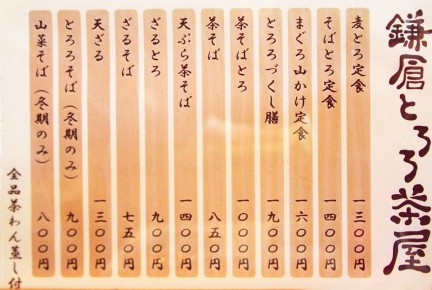 鎌倉とろろ茶屋
麦とろ定食 一三〇〇円
そばとろ定食 一四〇〇円
まぐろ山かけ定食 一六〇〇円
とろろづくし膳 一九〇〇円
茶そばとろ 一〇〇〇円
茶そば 八五〇円
天ぷら茶そば 一四〇〇円
ざるとろ 九〇〇円
ざるそば 七五〇円
天ざる 一三〇〇円
とろろそば（冬期のみ） 九〇〇円
山菜そば（冬期のみ） 八〇〇円
全品茶わん蒸し付